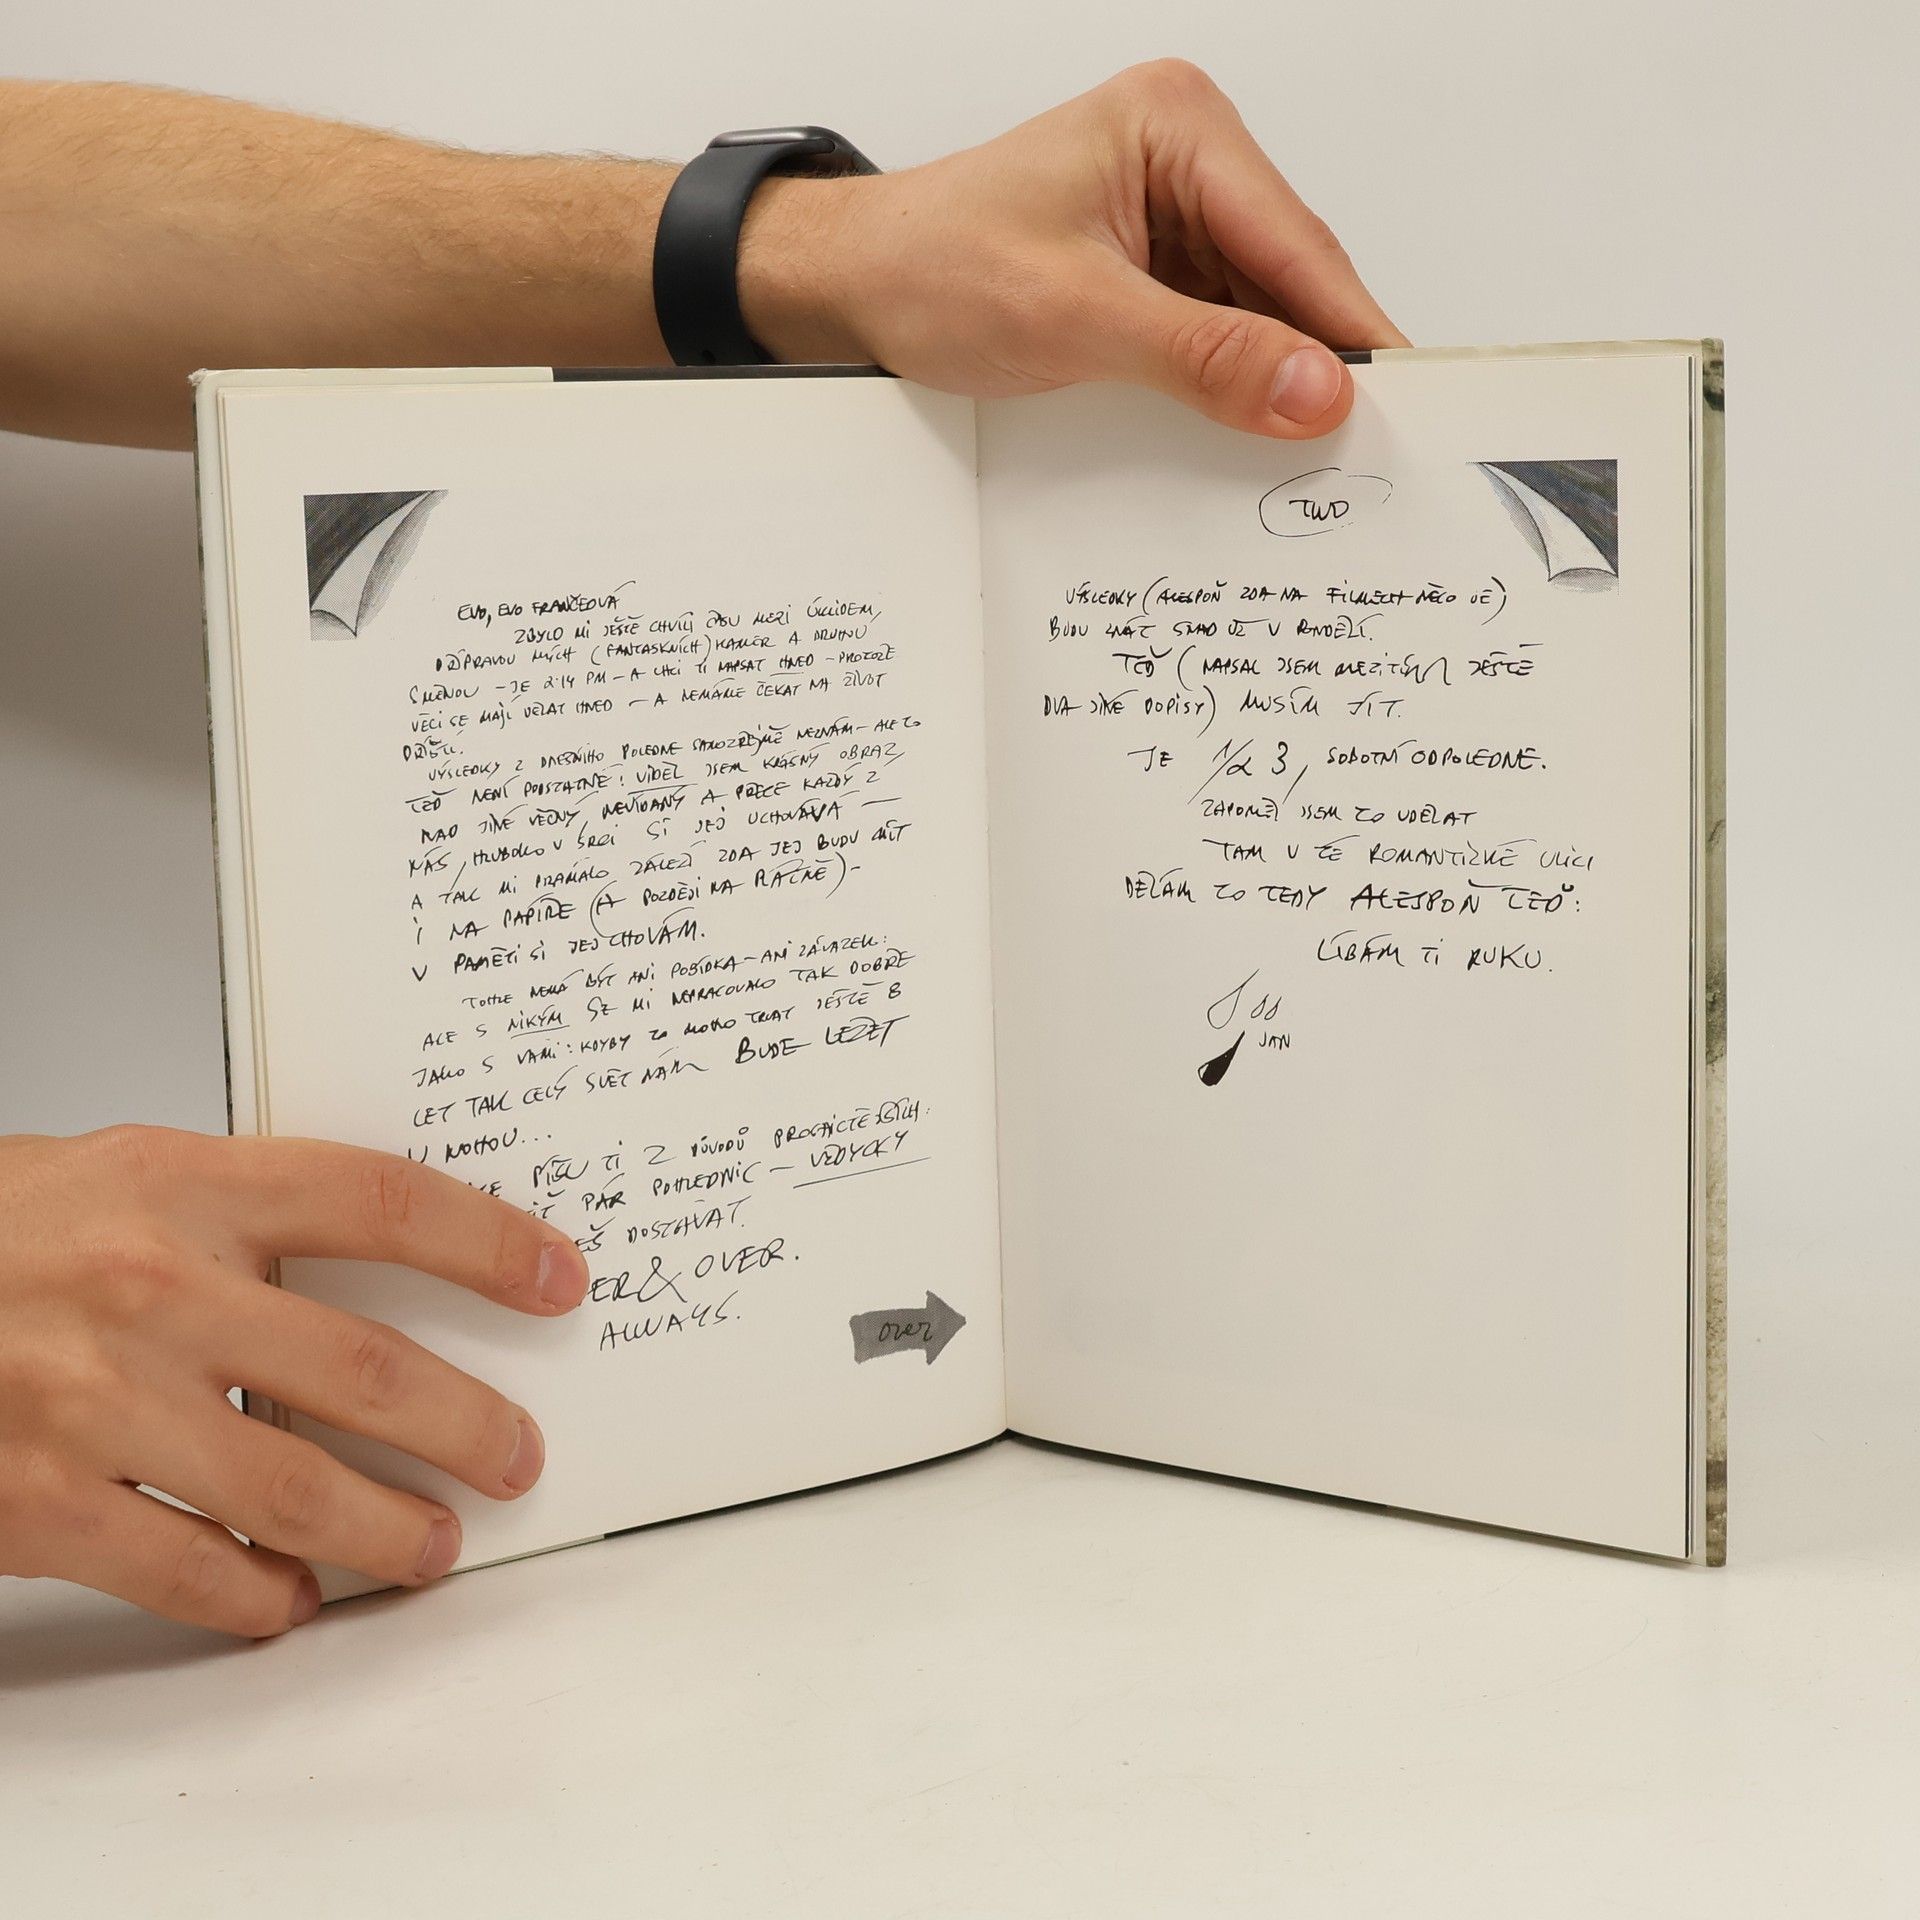 EVO, EVO FRANČEOVÁ
ZBYLO MI JEŠTĚ CHVILI ČASU MEZI ÚKLIDEM,
PŘÍPRAVOU MÝCH (FANTASKNÍCH) KAMER A DRUHOU
SMĚNOU – JE 2:14 PM – A CHCI TI NAPSAT HNED – PROTOŽE
VĚCI SE MAJÍ DĚLAT HNED – A NEMÁME ČEKAT NA ŽIVOT
PŘÍŠTÍ.
VÝSLEDKY Z DNEŠNÍHO POLEDNE SAMOZŘEJMĚ NEZNÁM – ALE TO
TEĎ NENÍ PODSTATNÉ: VIDĚL JSEM KRÁSNÝ OBRAZ,
NAD JINÉ VĚČNÝ, NEVÍDANÝ A PŘECE KAŽDÝ Z
NÁS, HLUBOKO V SRDCI SI JEJ UCHOVÁVÁ –
A TAK MI PRAMÁLO ZÁLEŽÍ ZDA JEJ BUDU MÍT
I NA PAPÍŘE (A POZDĚJI NA PLÁTNĚ) –
V PAMĚTI SI JEJ CHOVÁM.
TOHLE NEMÁ BÝT ANI POBÍDKA – ANI ZÁVAZEK:
ALE S NIKÝM SE MI NEPRACOVALO TAK DOBŘE
JAKO S VÁMI: KDYBY TO MOHLO TRVAT JEŠTĚ 8
LET TAK CELÝ SVĚT NÁM BUDE LEŽET
U NOHOU...
PÍŠU TI Z DŮVODŮ PROZAIČTĚJŠÍCH:
PÁR POHLEDNIC – VŽDYCKY
DOSTÁVAT.
& OVER.
ALWAYS.
over
TWO
VÝSLEDKY (ALESPOŇ ZDA NA FILMECH NĚCO JE)
BUDU ZNÁT SNAD UŽ V PONDĚLÍ.
TEĎ (NAPSAL JSEM MEZITÍM JEŠTĚ
DVA JINÉ DOPISY) MUSÍM JÍT.
JE 1/2 3, SOBOTNÍ ODPOLEDNE.
ZAPOMĚL JSEM TO UDĚLAT
TAM V TÉ ROMANTICKÉ ULICI
DĚLÁM TO TEDY ALESPOŇ TEĎ:
LÍBÁM TI RUKU.
JAN